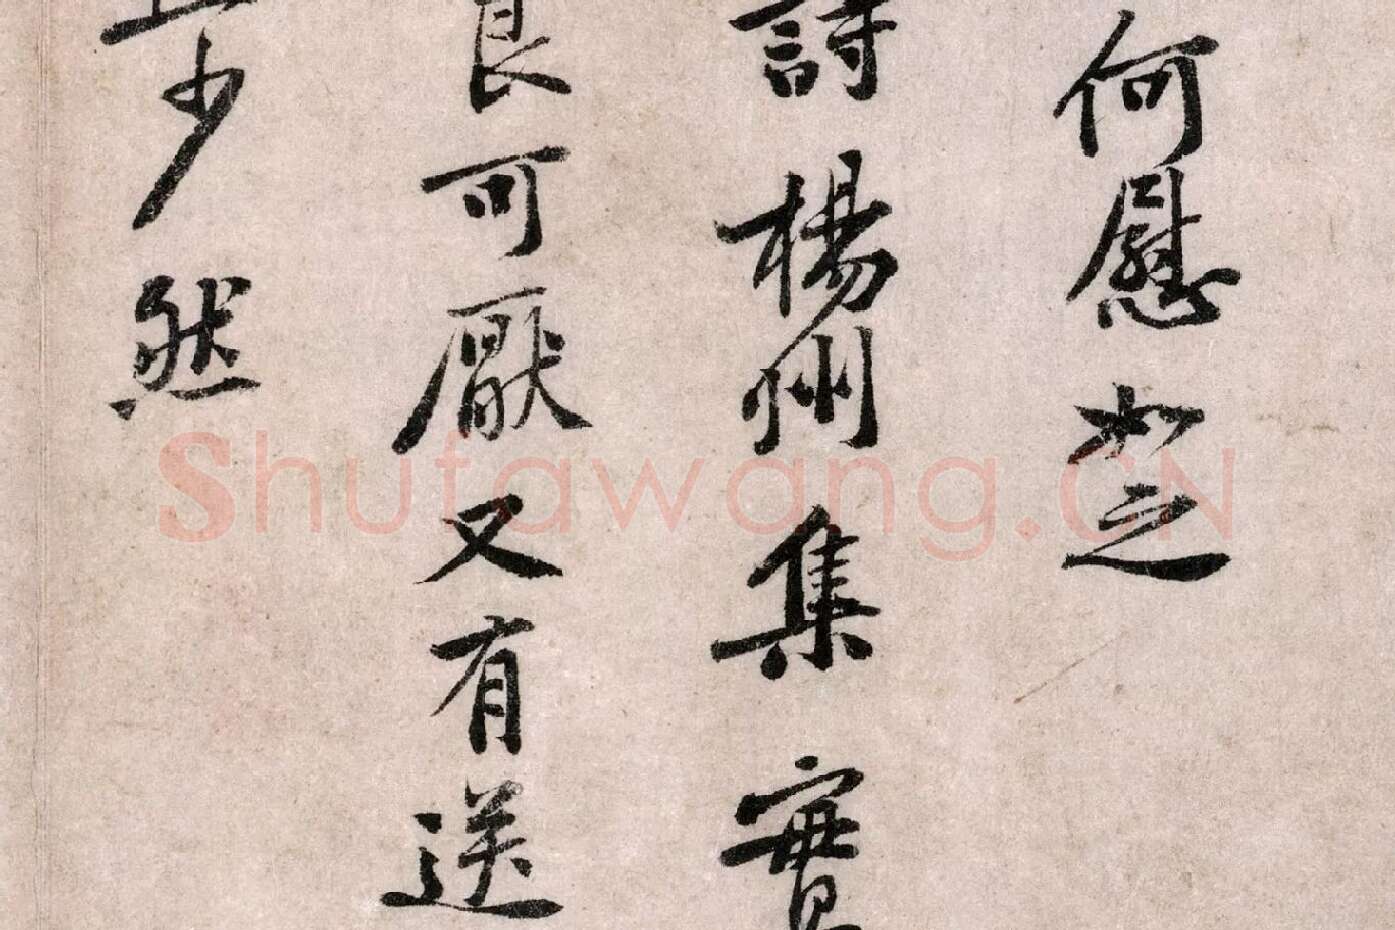 何慰如之
詩楊州集實
良可厭又有送
且少然
Shufawang.CN